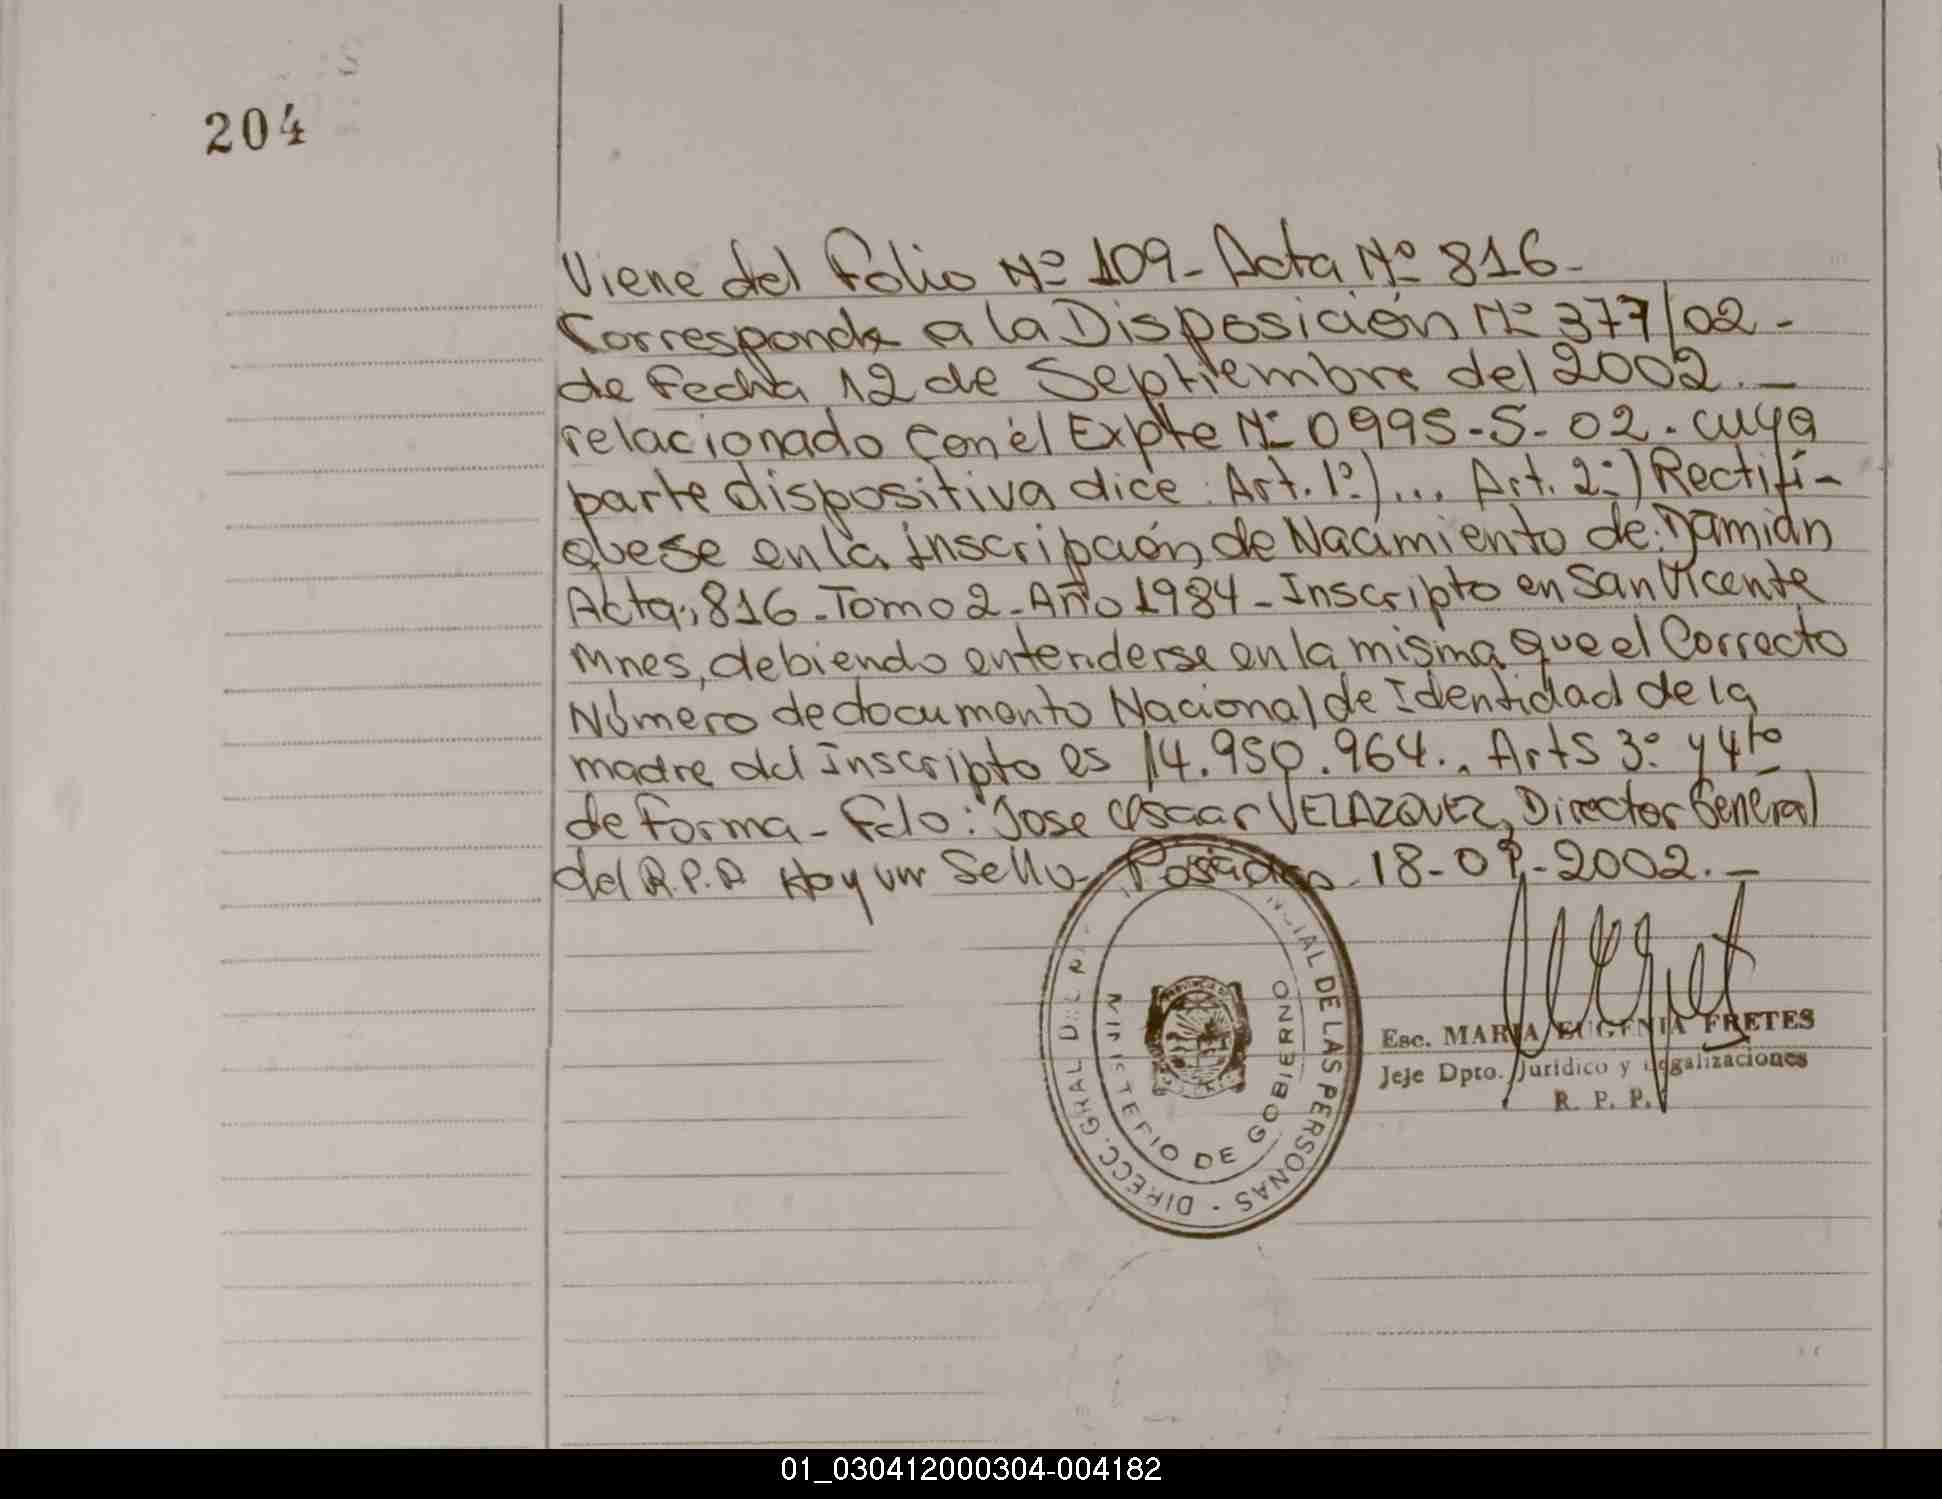 204
Viene del Folio Nº 109 - Acta Nº 816 -
Corresponde a la Disposición Nº 377/02 -
de Fecha 12 de Septiembre del 2002. -
relacionado con el Expte Nº 0995-S-02. cuya
parte dispositiva dice: Art. 1º) ... Art. 2º) Rectifí-
quese en la inscripción, de Nacimiento de: Damián
Acta: 816 - Tomo 2 - Año 1984 - Inscripto en San Vicente
Mnes, debiendo entenderse en la misma que el Correcto
Número de documento Nacional de Identidad de la
madre del Inscripto es 14.950.964.. Arts 3º y 4to
de Forma - Fdo: Jose Oscar VELAZQUEZ, Director General
del R.P.P Hay un Sello - Posadas 18-09-2002. -
DIRECC. GRAL DEL DE LAS PERSONAS -
MINISTERIO DE GOBIERNO
Esc. MARIA EUGENIA FRETES
Jefe Dpto. Jurídico y Legalizaciones
R. P. P.
01_030412000304-004182